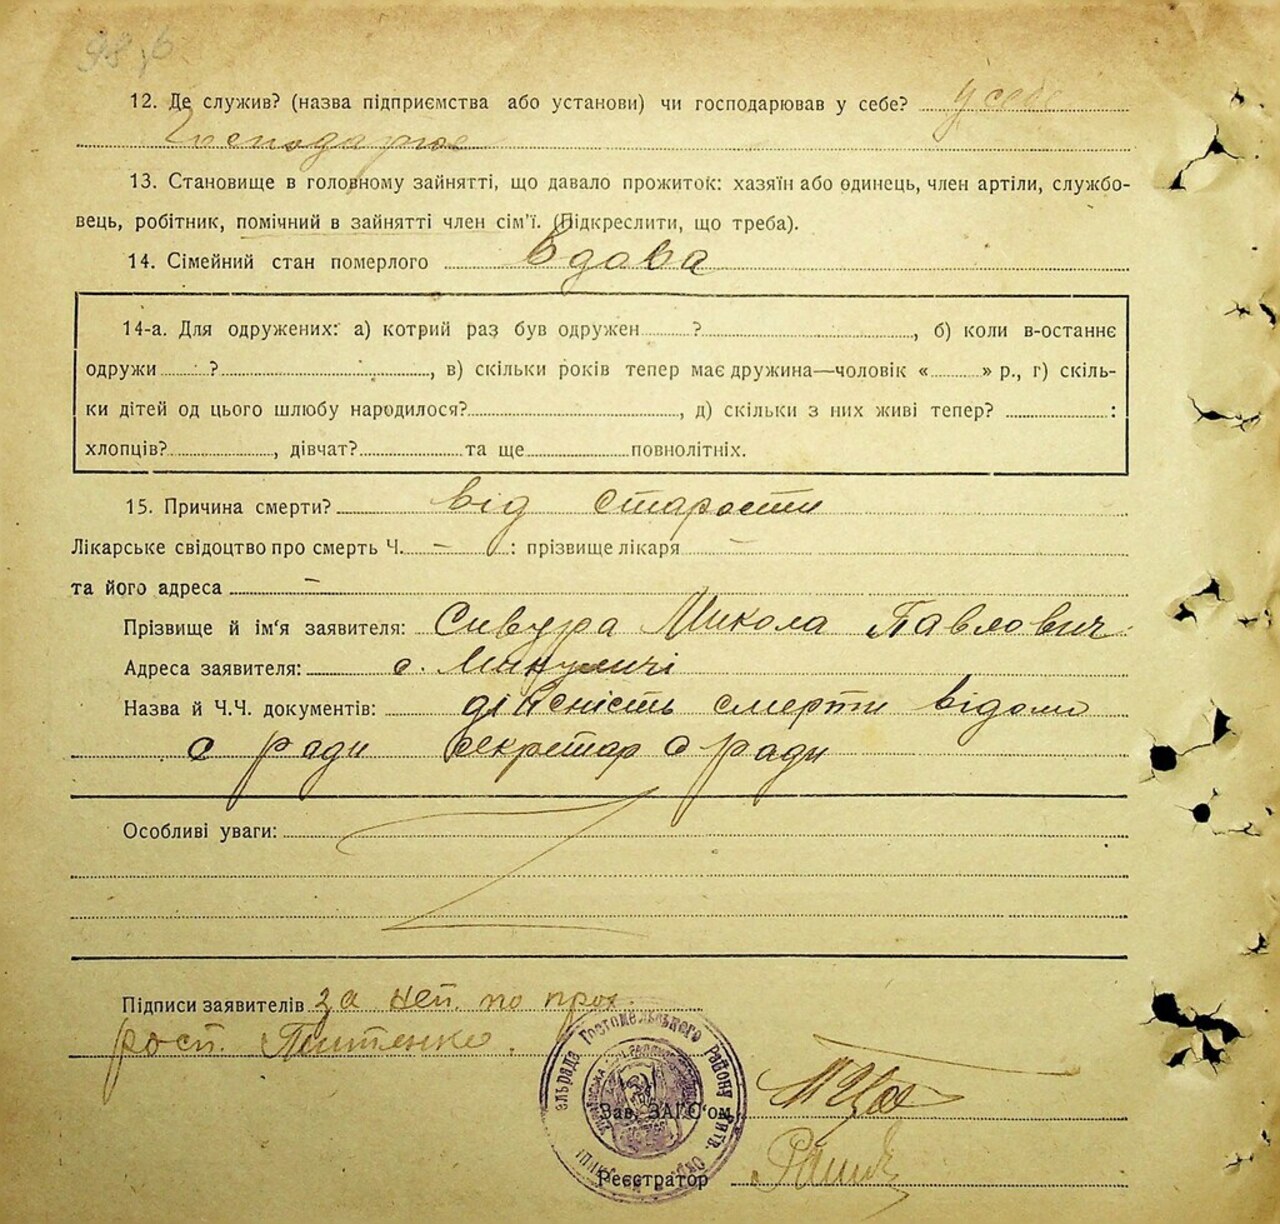 12. Де служив? (назва підприємства або установи) чи господарював у себе? у себе
Господарює
13. Становище в головному зайнятті, що давало прожиток: хазяїн або одинець, член артіли, службо-
вець, робітник, помічний в зайнятті член сім'ї. (Підкреслити, що треба).
14. Сімейний стан померлого вдова
14-а. Для одружених: а) котрий раз був одружен ? , б) коли в-останнє
одружи ? , в) скільки років тепер має дружина—чоловік « » р., г) скіль-
ки дітей од цього шлюбу народилося? , д) скільки з них живі тепер? :
хлопців? , дівчат? та ще повнолітніх.
15. Причина смерти? від старости
Лікарське свідоцтво про смерть Ч. – : прізвище лікаря –
та його адреса –
Прізвище й ім'я заявителя: Сивура Микола Павлович
Адреса заявителя: с. Микуличі
Назва й Ч.Ч. документів: дійсність смерти відома
с ради секретар с ради
Особливі уваги:
Підписи заявителів за неп. по прох.
росп.
Гостомельського Району
Зав. ЗАГС'ом
Реєстратор